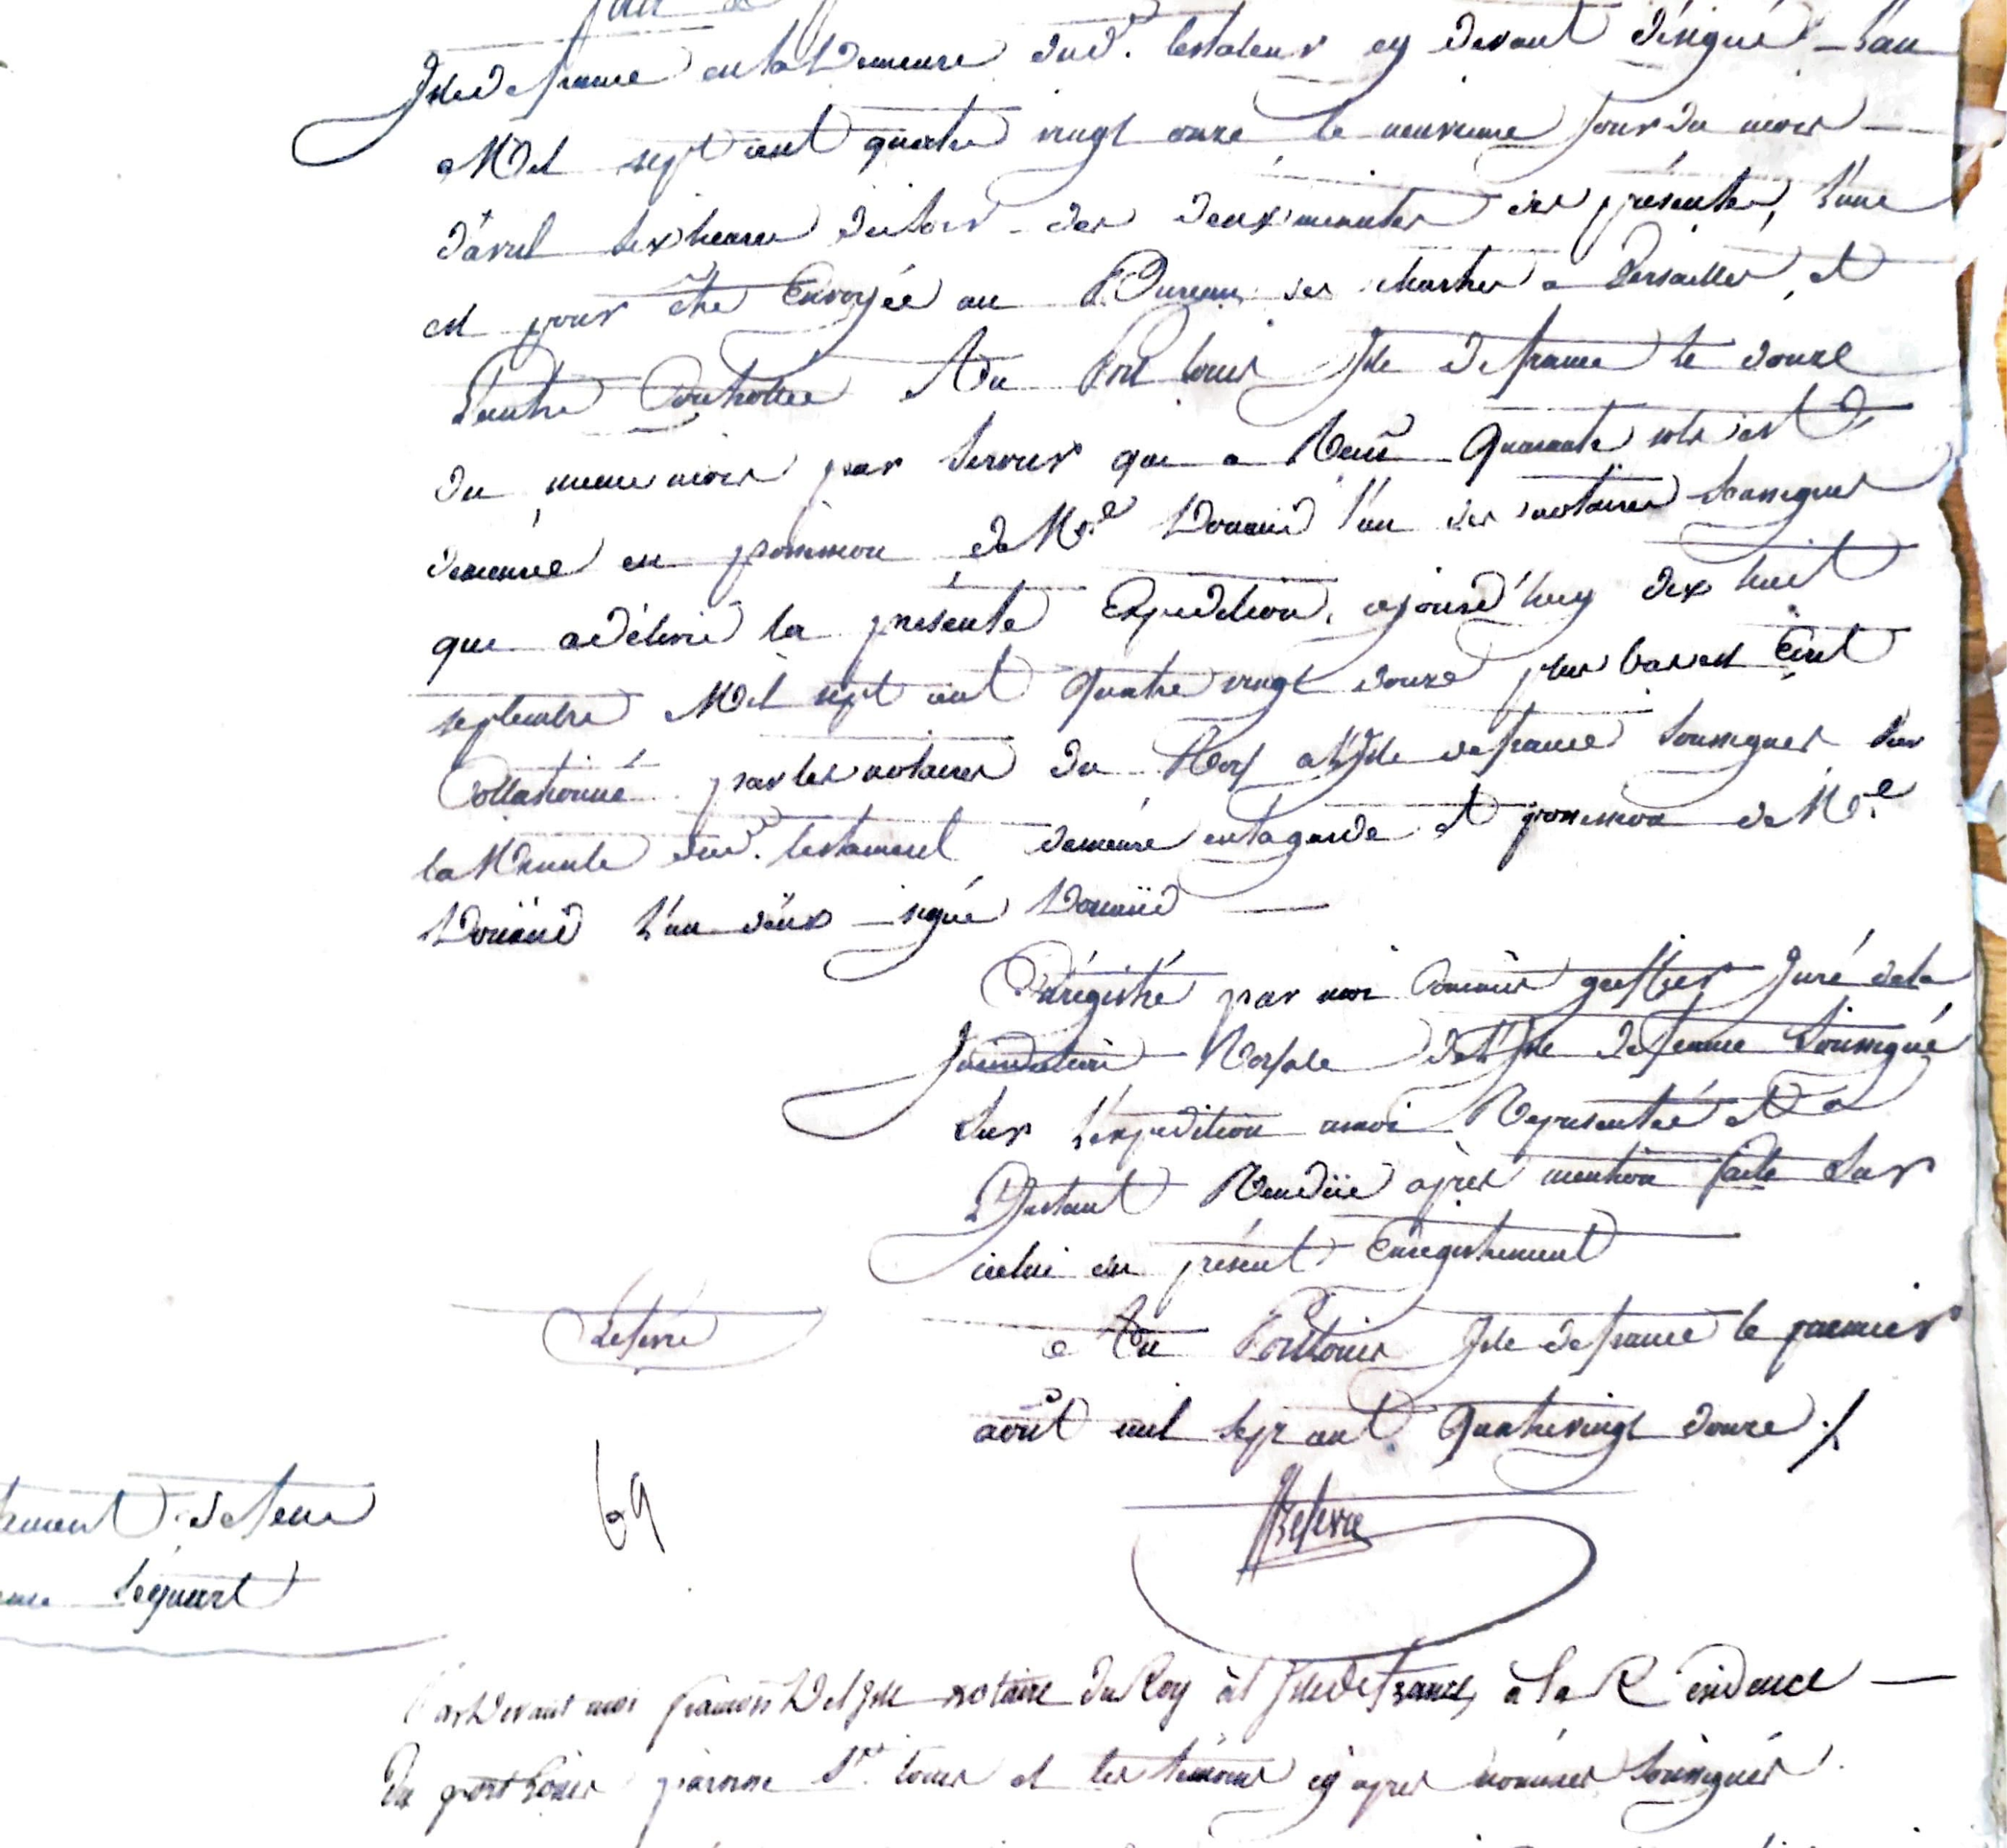 Isle de france en la Demeure dud. testateur cy devant désigné L'an
Mil sept cent quatre vingt onze le neuvieme Jour du mois
d'avril six heures du soir des deux minutes des présentes, l'une
est pour être Envoyée au Bureau des chartes a Versailles, et
L'autre Controllée Au Port Louis Isle De france le douze
du meme mois par Serour qui a Reçu Quarante sols est
demeurée en possession de Me. Douaud l'un des notaires Soussignés
qui a délivré la présente Expedition, cejourd'huy dix huit
septembre Mil sept cent Quatre vingt douze plus bas est Ecrit
Collationné par les notaires du Roy a L'Isle de france Soussignés Sur
la Minute dud. testament demeurée en la garde et possession de Me.
Douaud L'un d'eux signé Douaud
Enrégistré par moi Commis greffier Juré de la
Jurisdiction Royale de L'Isle de france Soussigné
Sur L'expedition a moi Representée et a
L'Instant Rendüe après mention faite Sur
icelui du présent Enregistrement
Lefevre
Au Port Louis Isle de france le premier
août mil sept cent Quatrevingt douze ./.
69
Lefevre
de feue
Séquart
Pardevant moi françois Delisle notaire du Roy à l'Isle de france, à la Résidence
du port Louis paroisse St. Louis et les témoins cy après nommés Soussignés